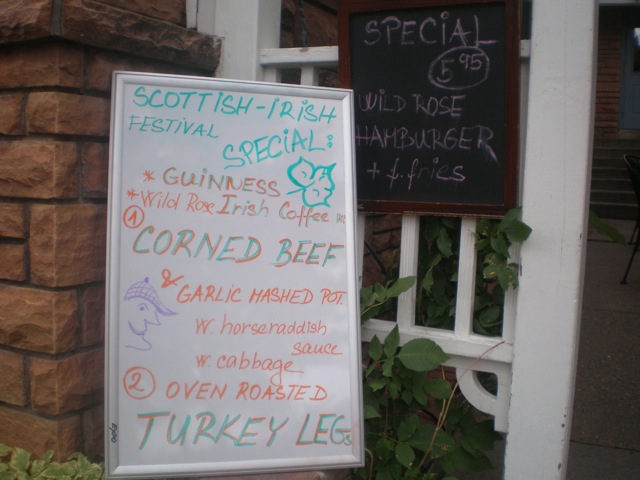 SCOTTISH-IRISH
FESTIVAL
SPECIAL:
* GUINNESS
* Wild Rose Irish Coffee
1
CORNED BEEF
& GARLIC MASHED POT.
w. horseraddish
sauce
w. cabbage
2 OVEN ROASTED
TURKEY LEGs
SPECIAL
5 95
WILD ROSE
HAMBURGER
+ f. fries